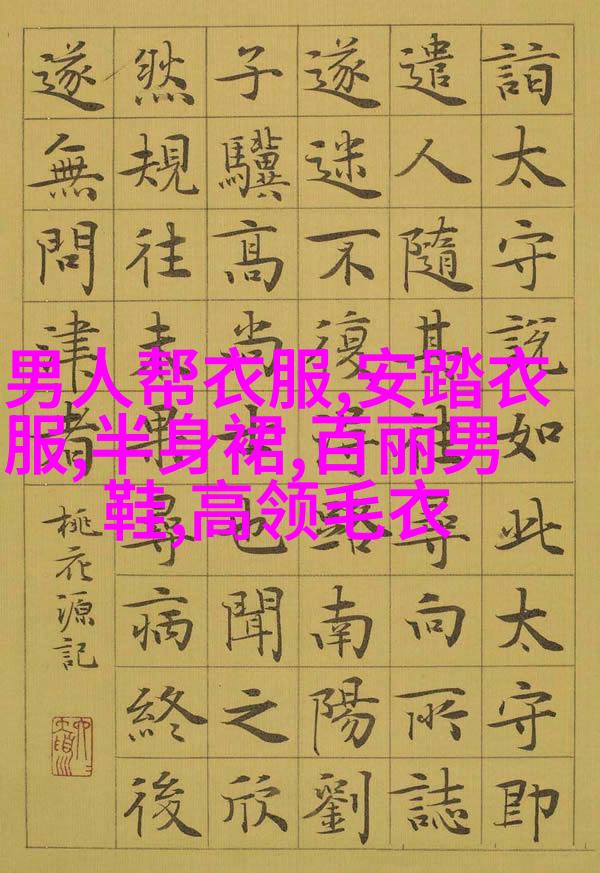 男人帮衣服,安踏衣
服,半身裙,百丽男
鞋,高领毛衣
詣太守說如此太守即
遣人隨其往尋向所誌
遂迷不復得路南陽劉
子驥高尚士也聞之欣
然規往未果尋病終後
遂無問津者
桃花源記